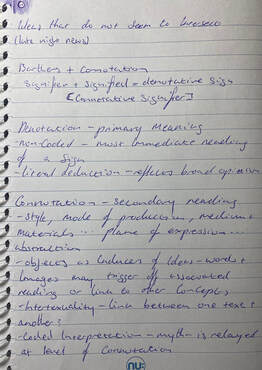 Ideas that do not seem to
(late night news)
Barthes + Connotation
Signifier + Signified = denotative Sign
[Connotative Signifier]
Denotation - primary Meaning
- non-Coded - most immediate reading
of a Sign
- literal deduction - reflects broad opinion
Connotation - secondary reading
- style, Mode of production, medium +
Materials ... plane of expression ...
abstraction
- objects as Inducers of Ideas - words +
Images may trigger off associated
reading or link to other Concepts
- Intertextuality - link between one text +
another?
- Coded Interpretation - myth is relayed
at level of Connotation
nu: